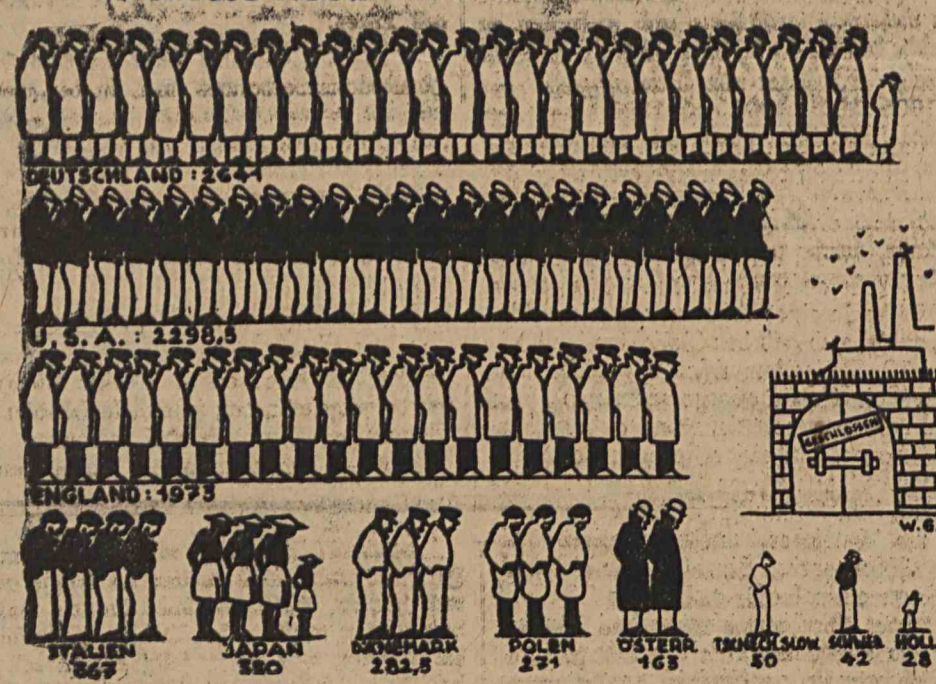 DEUTSCHLAND : 2641
U.S.A. : 2298,5
ENGLAND : 1973
GESCHLOSSEN
W.6
ITALIEN
367
JAPAN
DÄNEMARK
282,5
POLEN
271
ÖSTERR.
163
TSCHECH.SLOW.
50
42
HOLL
28